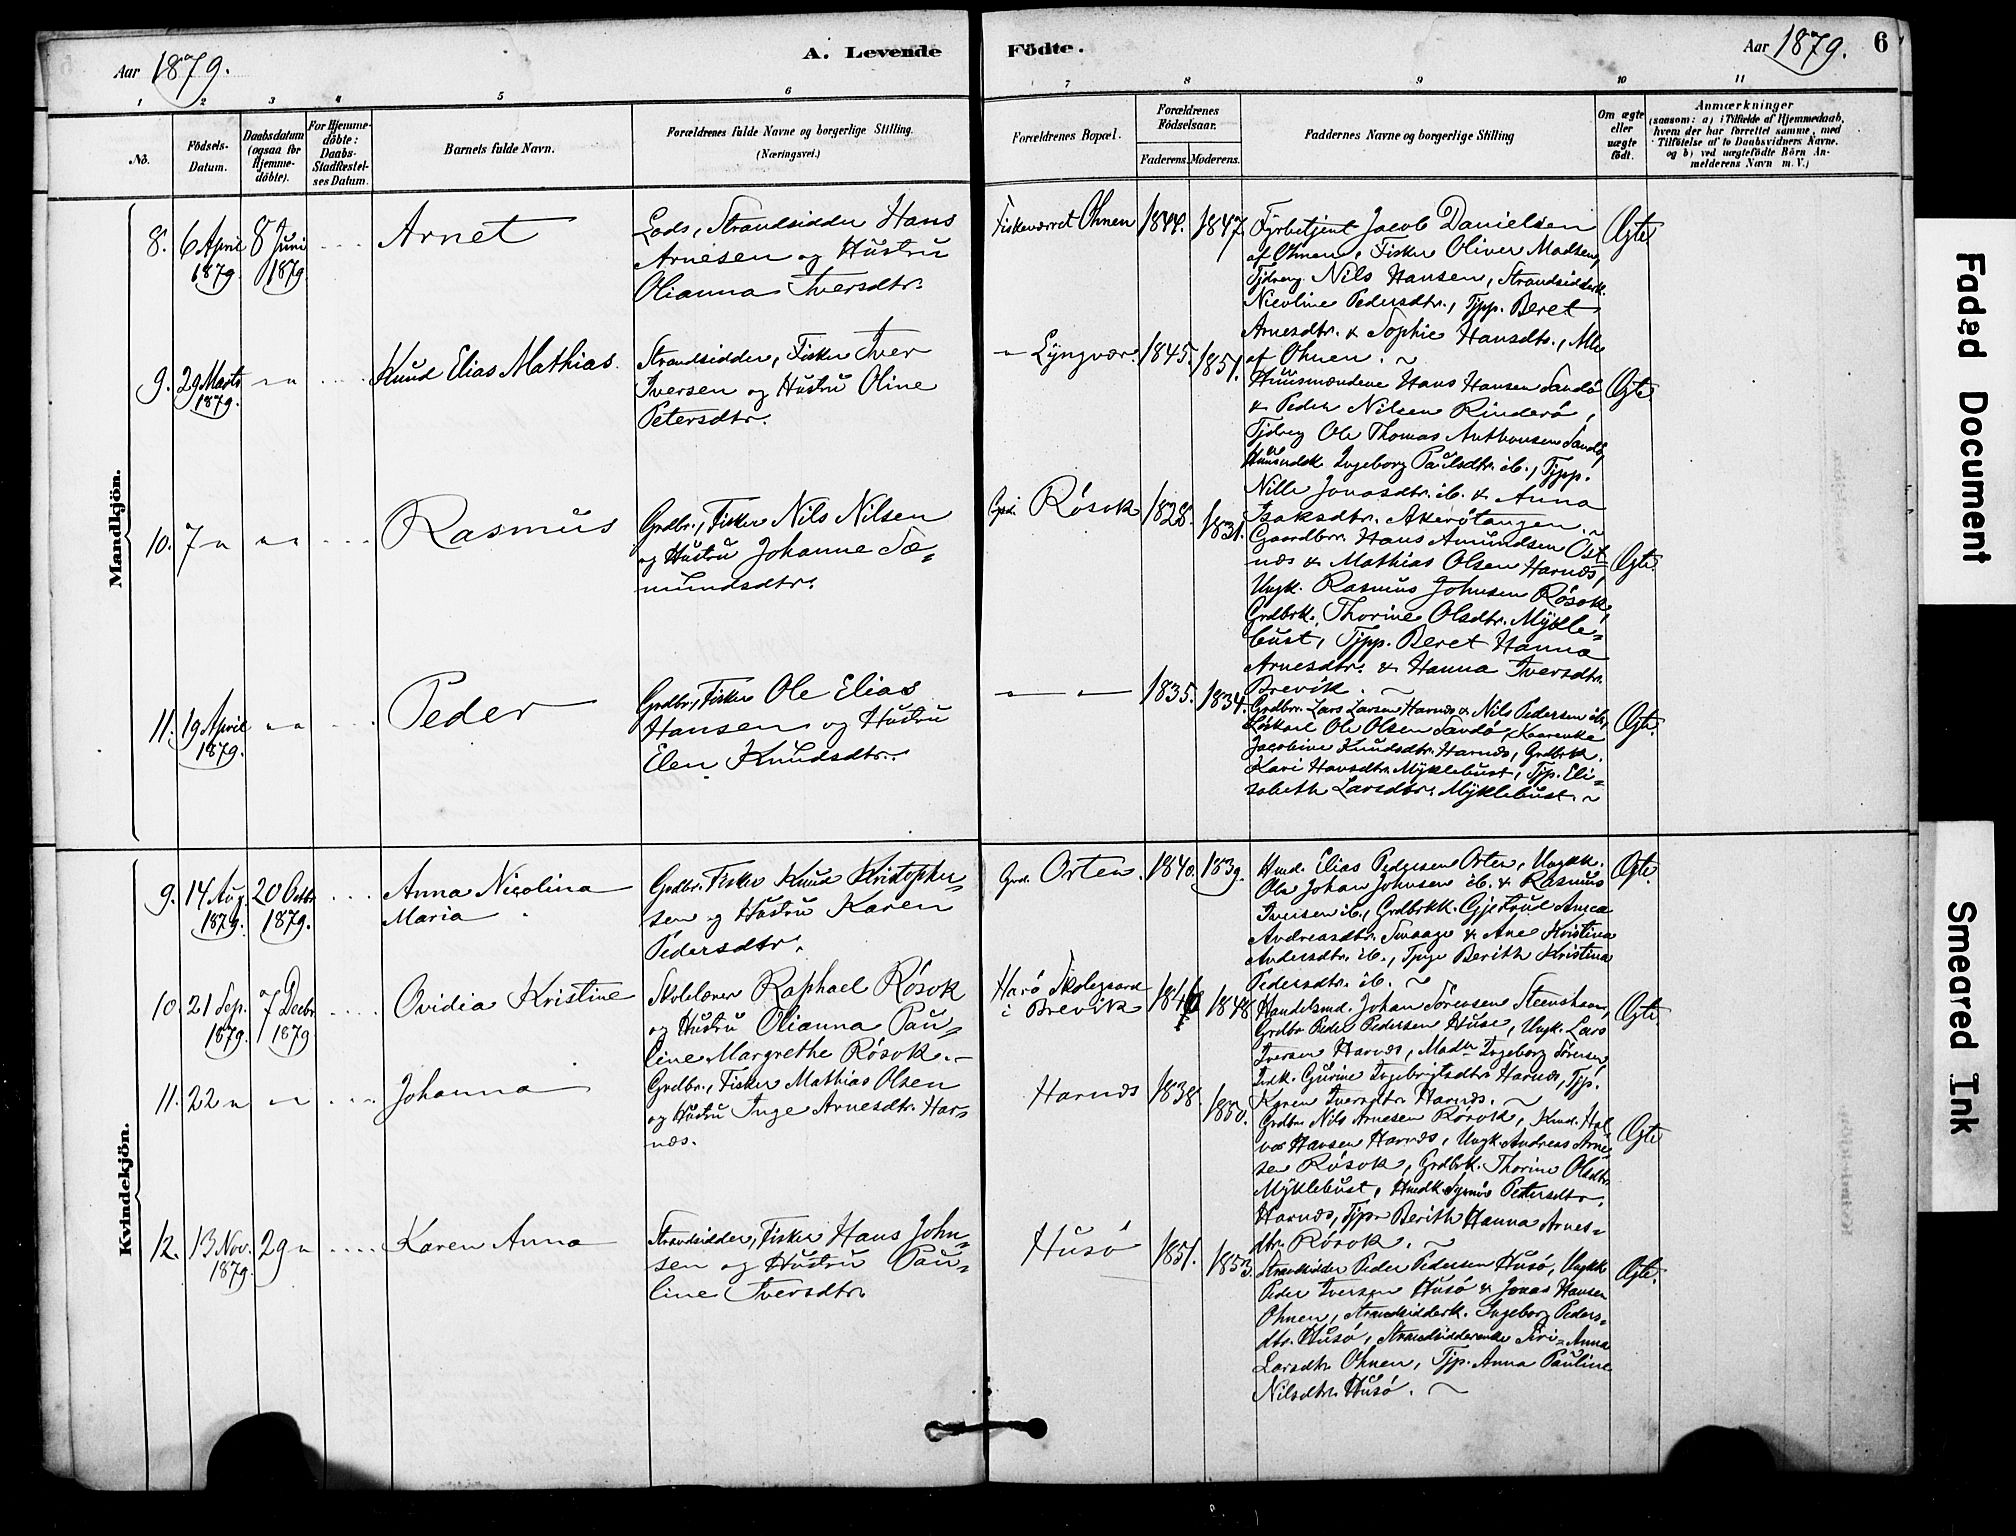 Aar 1879.
A. Levende
Födte.
Aar 1879.
6
1 2 3 4 5 6 7 8 9 10 11
No.
Födsels-
Datum.
Daabsdatum
(ogsaa for
Hjemme-
döbte).
For Hjemme-
döbte:
Daabs-
Stadfæstel-
ses Datum.
Barnets fulde Navn.
Forældrenes fulde Navne og borgerlige Stilling.
(Næringsvei.)
Forældrenes Bopæl.
Forældrenes
Födselsaar.
Faderens. Moderens.
Faddernes Navne og borgerlige Stilling
Om ægte
eller
uægte
født.
Anmærkninger
(saasom: a) i Tilfælde af Hjemmedaab,
hvem der har forrettet samme, med
Tilföielse af to Daabsvidners Navne,
og b) ved uægtefödte Börn An-
melderens Navn m. V.)
Mandkjön.
8.
6 April
1879.
8 Juni
1879
Arnet
Lods, Strandsidder Hans
Arnesen og Hustru
Olianna Iversdtr.
Fiskeværet Ohnen
1844.
1847
Fyrbetjent Jacob Danielsen
af Ohnen, Fisker Oliver Madsen,
Tjdreng Nils Hansen, Strandsidderk.
Nicoline Pedersdtr., Tjpp. Beret
Arnesdtr. & Sophie Hansdtr., Alle
af Ohnen. ~
Ægte
9.
29 Marts
1879.
" "
Knud Elias Mathias.
Strandsidder, Fisker Iver
Iversen og Hustru Oline
Petersdtr.
" Lyngvær.
1845.
1851.
Huusmændene Hans Hansen Sandö
& Peder Nilsen Rinderö,
Tjdreng Ole Thomas Anthonsen Sandö,
Huusmdsk. Ingeborg Paulsdtr. ib., Tjpp.
Nille Jonasdtr. ib. & Anna
Isaksdtr. Akerötangen. ~
Ægte.
10.
7 "
" "
Rasmus
Grdbr., Fisker Nils Nilsen
og Hustru Johanne Sæ-
mundsdtr.
Grd. Rösok
1828.
1831.
Gaardbrr. Hans Amundsen Öst-
næs & Mathias Olsen Harnæs,
Ungk. Rasmus Johnsen Rösok,
Grdbrk. Thorine Olsdtr. Mykle-
bust, Tjpp. Beret Hanna
Arnesdtr. & Hanna Iversdtr.
Brevik. ~
Ægte.
11.
19 April
1879.
" "
Peder
Grdbr., Fisker Ole Elias
Hansen og Hustru
Elen Knudsdtr.
" "
1835.
1834.
Grdbr. Lars Larsen Harnæs & Nils Pedersen ib.,
Löskarl Ole Olsen Sandö,
Jacobine Knudsdtr. Harnæs, Grdbrk.
Kari Hansdtr. Myklebust, Tjp. Eli-
sabeth Larsdtr. Myklebust. ~
Ægte.
Kvindekjön.
9.
14 Aug.
1879.
20 Octbr
1879.
Anna Nicolina
Maria
Grdbr. Fisker Knud Kristopher-
sen og Hustru Karen
Pedersdtr.
Grd. Orten.
1840.
1839.
Hmd. Elias Pedersen Orten, Ungkk.
Ole Johan Johnsen ib. & Rasmus
Iversen ib., Grdbrkk. Gjertrud Anna
Andreasdtr. & Ane Kristina
Andersdtr. ib., Tpige Berith Kristina
Pedersdtr. ib. ~
Ægte.
10.
21 Sep.
1879.
7 Decbr
1879
Ovidia Kristine
Skolelærer Raphael Rösok
og Hustru Olianna Pau-
line Margrethe Rösok. -
Harö Skolegaard
i Brevik
1846
1848
Handelsmd. Johan Sörensen Steenshavn,
Grdbr Peder Pedersen Huse, Ungk. Lars
Iversen Harnæs, Mad<sup>m</sup> Ingeborg Sörensen,
Indk. Gurine Ingebrigtsdtr Harnæs, Tjp.
Karen Iversdtr Harnæs. ~
Ægte.
11.
22 "
" "
Johanna
Grdbr., Fisker Mathias Olsen
og Hustru Inge Arnesdtr. Har-
næs.
Harnæs
1838.
1850.
Grdbr Nils Arnesen Rösvik, Hal-
vor Hansen Harnæs, Ungk. Andreas Arne-
sen Rösok, Grdbrk. Thorine Olsdtr.
Myklebust, Hmdk. Synnöv Petersdtr.
Harnæs, Tjp. Berith Hanna Arnes-
dtr. Rösok. ~
Ægte
12.
13 Nov.
1879.
29 "
Karen Anna
Strandsidder, Fisker Hans John-
sen og Hustru Pau-
line Iversdtr.
Husö
1851.
1853.
Strandsidder Peder Pedersen Husö, Ungkk
Peder Iversen Husö & Jonas Hansen
Ohnen, Strandsidderk. Ingeborg Peders-
dtr. Husö, Strandsidderenke Siri-Anna
Larsdtr. Ohnen, Tjp. Anna Pauline
Nilsdtr. Husö. ~
Ægte.
Faded Document
Smeared Ink